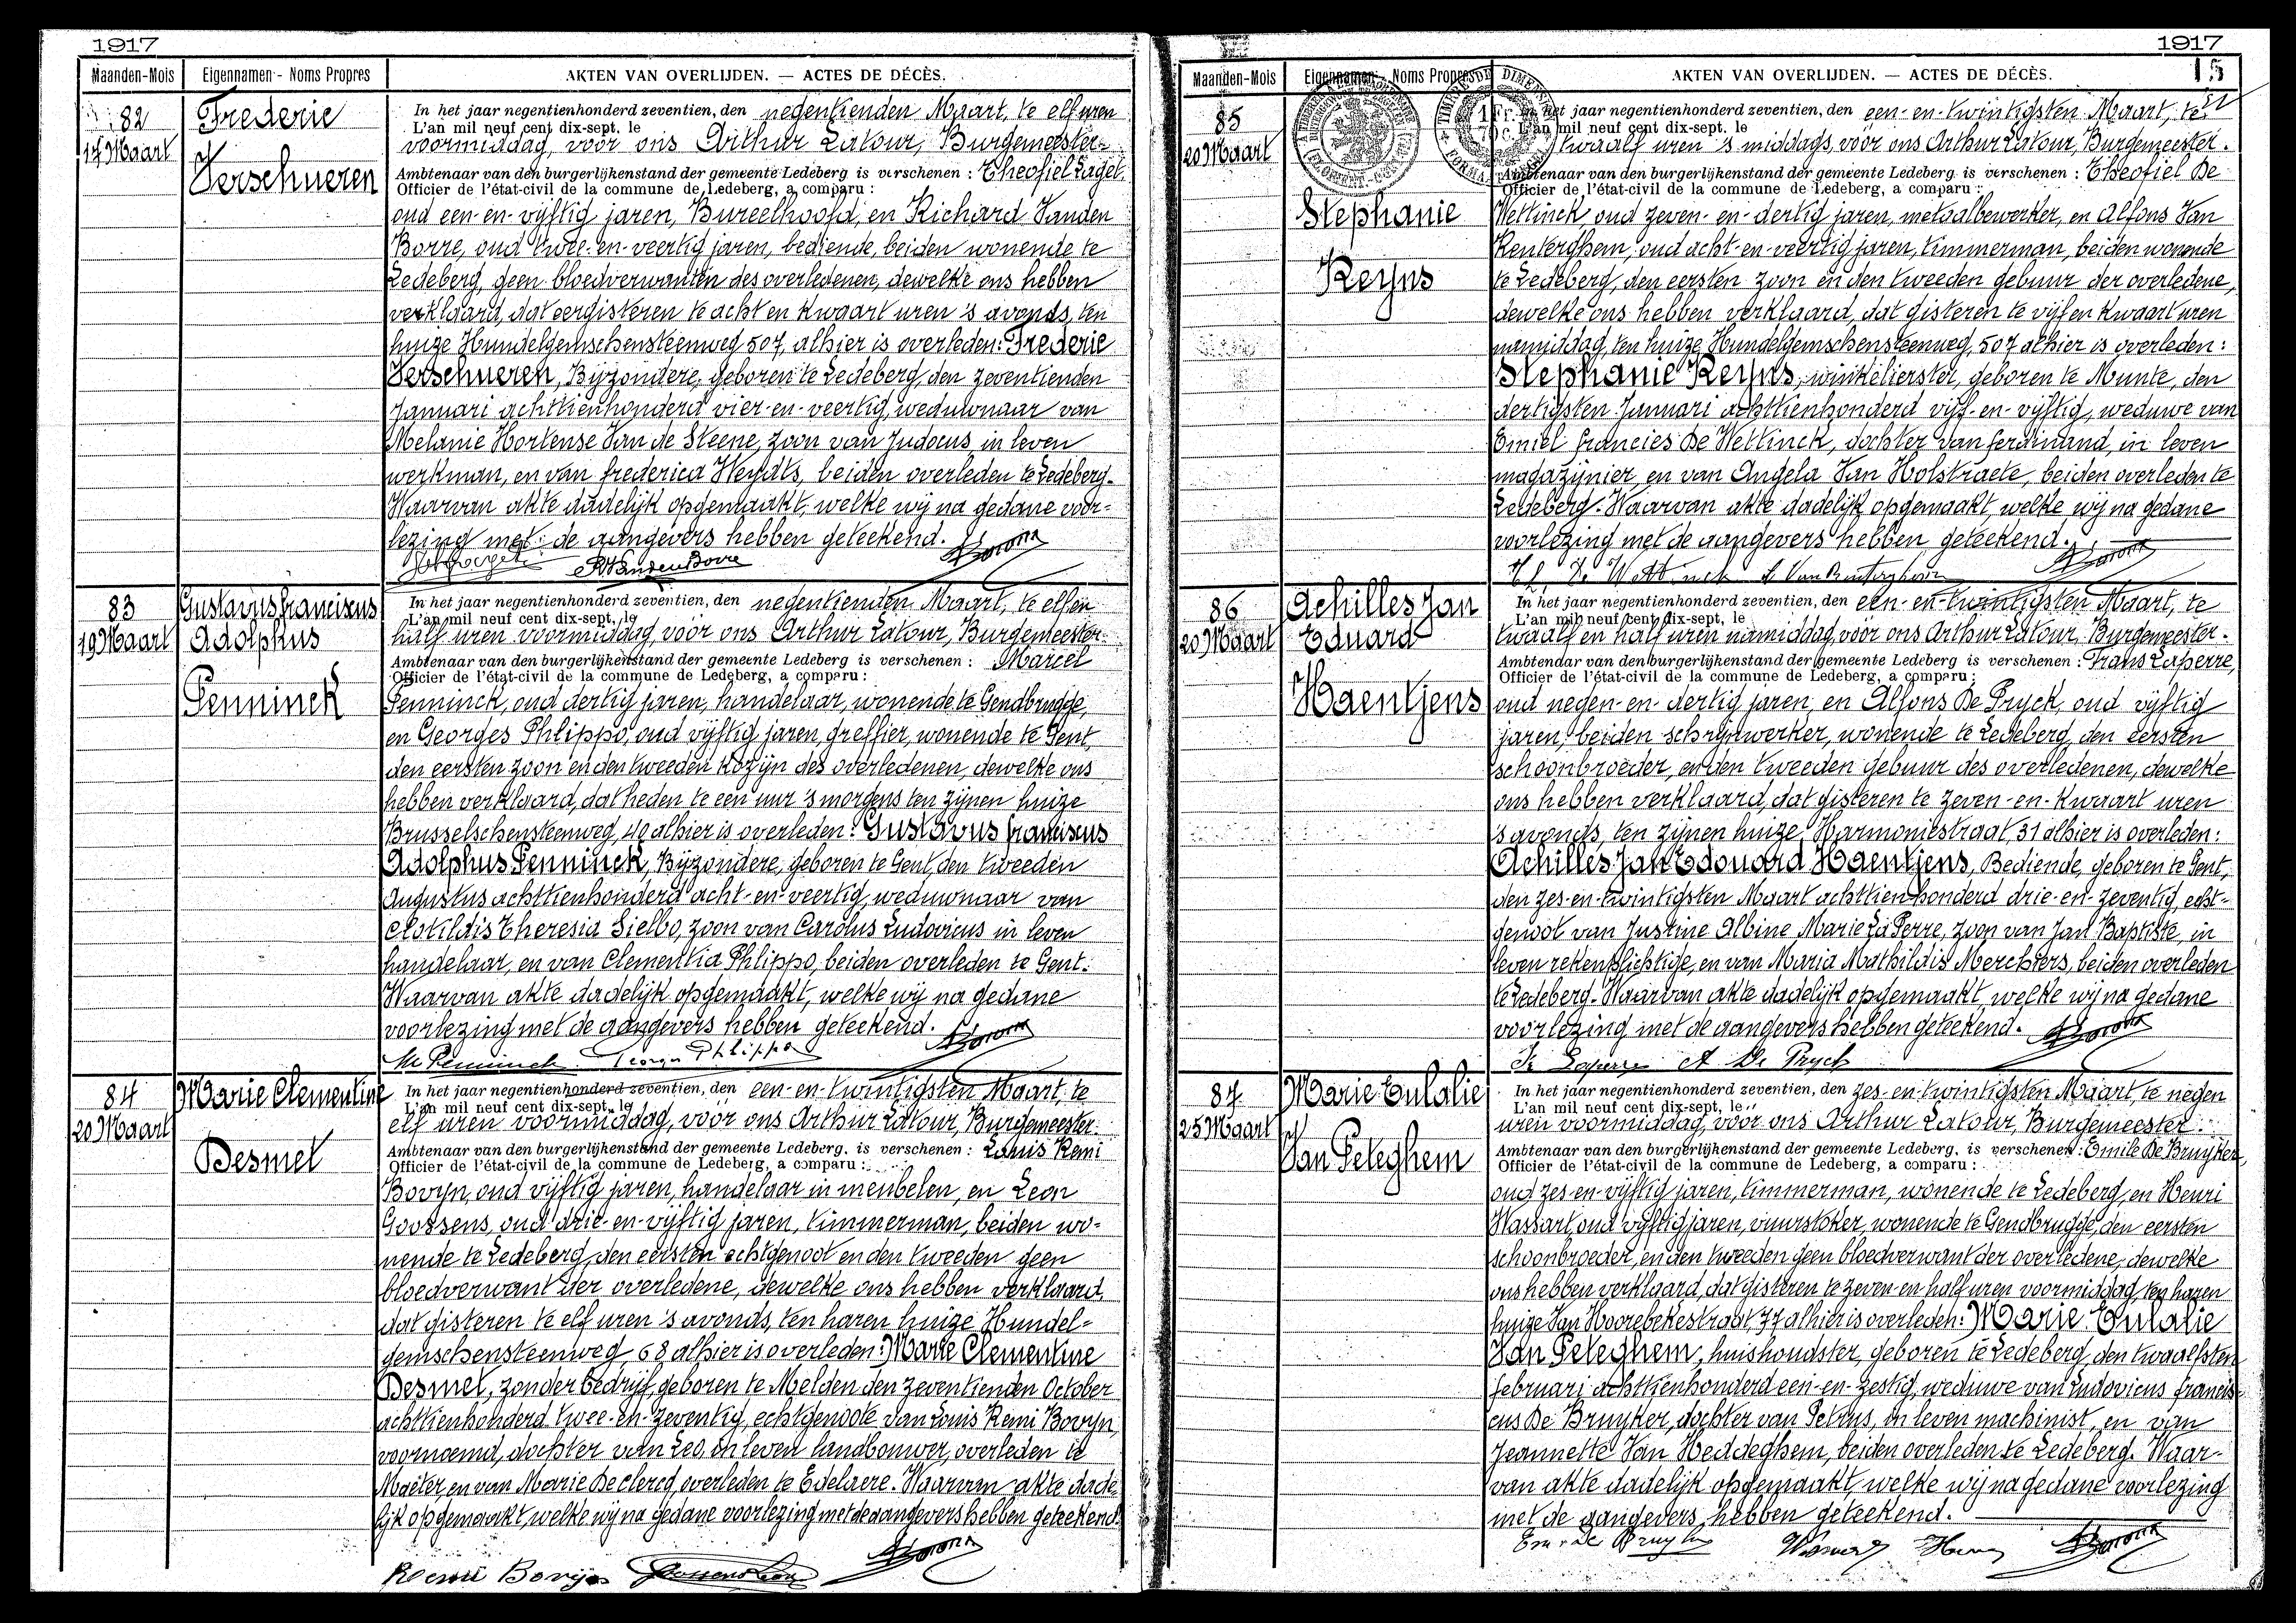 1917
Maanden-Mois Eigennamen - Noms Propres AKTEN VAN OVERLIJDEN. — ACTES DE DÉCÈS.
82
17 Maart
Frederic
Verschueren
In het jaar negentienhonderd zeventien, den negentienden Maart, te elf uren
L'an mil neuf cent dix-sept, le
voormiddag, voor ons Arthur Latour, Burgemeester-
Ambtenaar van den burgerlijkenstand der gemeente Ledeberg is verschenen : Theofiel Laget,
Officier de l'état-civil de la commune de Ledeberg, a comparu :
oud een-en-vijftig jaren, Bureelhoofd, en Richard Vanden
Borre, oud twee-en-veertig jaren, bediende, beiden wonende te
Ledeberg, geen bloedverwanten des overledenen, dewelke ons hebben
verklaard, dat eergisteren te acht en kwaart uren 's avonds, ten
huize Hundelgemschensteenweg 507, alhier is overleden: Frederic
Verschueren, Bijzondere, geboren te Ledeberg, den zeventienden
Januari achttienhonderd vier-en-veertig, weduwnaar van
Melanie Hortense Van de Steene, zoon van Judocus, in leven
werkman, en van Frederica Weydts, beiden overleden te Ledeberg.
Waarvan akte dadelijk opgemaakt, welke wij na gedane voor-
lezing met de aangevers hebben geteekend.
R Vanden Borre
83
19 Maart
Gustavus Franciscus
Adolphus
Penninck
In het jaar negentienhonderd zeventien, den negentienden Maart, te elf en
L'an mil neuf cent dix-sept, le
half uren voormiddag, voor ons Arthur Latour, Burgemeester-
Ambtenaar van den burgerlijkenstand der gemeente Ledeberg is verschenen : Marcel
Officier de l'état-civil de la commune de Ledeberg, a comparu :
Penninck, oud dertig jaren, handelaar, wonende te Gendbrugge,
en Georges Phlippo, oud vijftig jaren, greffier, wonende te Gent,
den eersten zoon en den tweeden kozijn des overledenen, dewelke ons
hebben verklaard, dat heden te een uur 's morgens ten zijnen huize
Brusselschensteenweg, 40 alhier is overleden: Gustavus Franciscus
Adolphus Penninck, Bijzondere, geboren te Gent, den tweeden
Augustus achttienhonderd acht-en-veertig, weduwnaar van
Clotildis Theresia Sielbo, zoon van Carolus Ludovicus in leven
handelaar, en van Clementia Phlippo, beiden overleden te Gent.
Waarvan akte dadelijk opgemaakt, welke wij na gedane
voorlezing met de aangevers hebben geteekend.
M Penninck Georges Phlippo
84
20 Maart
Marie Clementine
Desmet
In het jaar negentienhonderd zeventien, den een-en-twintigsten Maart, te
L'an mil neuf cent dix-sept, le
elf uren voormiddag, voor ons Arthur Latour, Burgemeester-
Ambtenaar van den burgerlijkenstand der gemeente Ledeberg, is verschenen : Louis Remi
Officier de l'état-civil de la commune de Ledeberg, a comparu :
Bovyn, oud vijftig jaren, handelaar in meubelen, en Leon
Goossens, oud drie-en-vijftig jaren, timmerman, beiden wo-
nende te Ledeberg, den eersten echtgenoot en den tweeden geen
bloedverwant der overledene, dewelke ons hebben verklaard,
dat gisteren te elf uren 's avonds, ten haren huize Hundel-
gemschensteenweg, 68 alhier is overleden: Marie Clementine
Desmet, zonder bedrijf, geboren te Melden den zeventienden October
achttienhonderd twee-en-zeventig, echtgenoote van Louis Remi Bovyn,
voornoemd, dochter van Leo, in leven landbouwer, overleden te
Mater, en van Marie Declercq, overleden te Edelaere. Waarvan akte dade-
lijk opgemaakt, welke wij na gedane voorlezing met de aangevers hebben geteekend.
Remi Bovijn Goossens Leon
1917
15
Maanden-Mois Eigennamen - Noms Propres AKTEN VAN OVERLIJDEN. — ACTES DE DÉCÈS.
85
20 Maart
Stephanie
Reyns
In het jaar negentienhonderd zeventien, den een-en-twintigsten Maart, te
L'an mil neuf cent dix-sept, le
twaalf uren 's middags, voor ons Arthur Latour, Burgemeester-
Ambtenaar van den burgerlijkenstand der gemeente Ledeberg is verschenen : Theofiel De
Officier de l'état-civil de la commune de Ledeberg, a comparu :
Wettinck oud zeven-en-dertig jaren, metaalbewerker, en Alfons Van
Renterghem, oud acht-en-veertig jaren, timmerman, beiden wonende
te Ledeberg, den eersten zoon en den tweeden gebuur der overledene,
dewelke ons hebben verklaard, dat gisteren te vijf en kwaart uren
namiddag, ten huize Hundelgemschensteenweg, 507 alhier is overleden:
Stephanie Reyns, winkelierster, geboren te Munte, den
dertigsten Januari achttienhonderd vijf-en-vijftig, weduwe van
Emiel Francies De Wettinck, dochter van Ferdinand, in leven
magazijnier, en van Angela Van Holstraete, beiden overleden te
Ledeberg. Waarvan akte dadelijk opgemaakt, welke wij na gedane
voorlezing met de aangevers hebben geteekend.
Th. De Wettinck A Van Renterghem
86
20 Maart
Achilles Jan
Eduard
Haentjens
In het jaar negentienhonderd zeventien, den een-en-twintigsten Maart, te
L'an mil neuf cent dix-sept, le
twaalf en half uren namiddag, voor ons Arthur Latour, Burgemeester-
Ambtenaar van den burgerlijkenstand der gemeente Ledeberg is verschenen : Frans Laperre,
Officier de l'état-civil de la commune de Ledeberg, a comparu :
oud negen-en-dertig jaren, en Alfons De Pryck, oud vijftig
jaren, beiden schrijnwerker, wonende te Ledeberg, den eersten
schoonbroeder, en den tweeden gebuur des overledenen, dewelke
ons hebben verklaard, dat gisteren te zeven-en-kwaart uren
's avonds, ten zijnen huize, Harmoniestraat, 31 alhier is overleden:
Achilles Jan Edouard Haentjens, Bediende, geboren te Gent,
den zes-en-twintigsten Maart achttienhonderd drie-en-zeventig, echt-
genoot van Justine Albine Marie La Perre, zoon van Jan Baptiste, in
leven rekenplichtige, en van Maria Mathildis Merchiers, beiden overleden
te Ledeberg. Waarvan akte dadelijk opgemaakt, welke wij na gedane
voorlezing met de aangevers hebben geteekend.
Fr Laperre A De Pryck
87
25 Maart
Marie Eulalie
Van Peteghem
In het jaar negentienhonderd zeventien, den zes-en-twintigsten Maart, te negen
L'an mil neuf cent dix-sept, le
uren voormiddag, voor ons Arthur Latour, Burgemeester-
Ambtenaar van den burgerlijkenstand der gemeente Ledeberg, is verschenen : Emile De Bruyker,
Officier de l'état-civil de la commune de Ledeberg, a comparu :
oud zes-en-vijftig jaren, timmerman, wonende te Ledeberg, en Henri
Wassart, oud vijftig jaren, vuurstoker, wonende te Gendbrugge, den eersten
schoonbroeder, en den tweeden geen bloedverwant der overledene, dewelke
ons hebben verklaard, dat gisteren te zeven-en-half uren voormiddag, ten haren
huize Van Hoorebekestraat, 77 alhier is overleden: Marie Eulalie
Van Peteghem, huishoudster, geboren te Ledeberg, den twaalfsten
Februari achttienhonderd een-en-zestig, weduwe van Ludovicus Francis-
cus De Bruyker, dochter van Petrus, in leven machinist, en van
Jeannette Van Heddeghem, beiden overleden te Ledeberg. Waar-
van akte dadelijk opgemaakt, welke wij na gedane voorlezing
met de aangevers hebben geteekend.